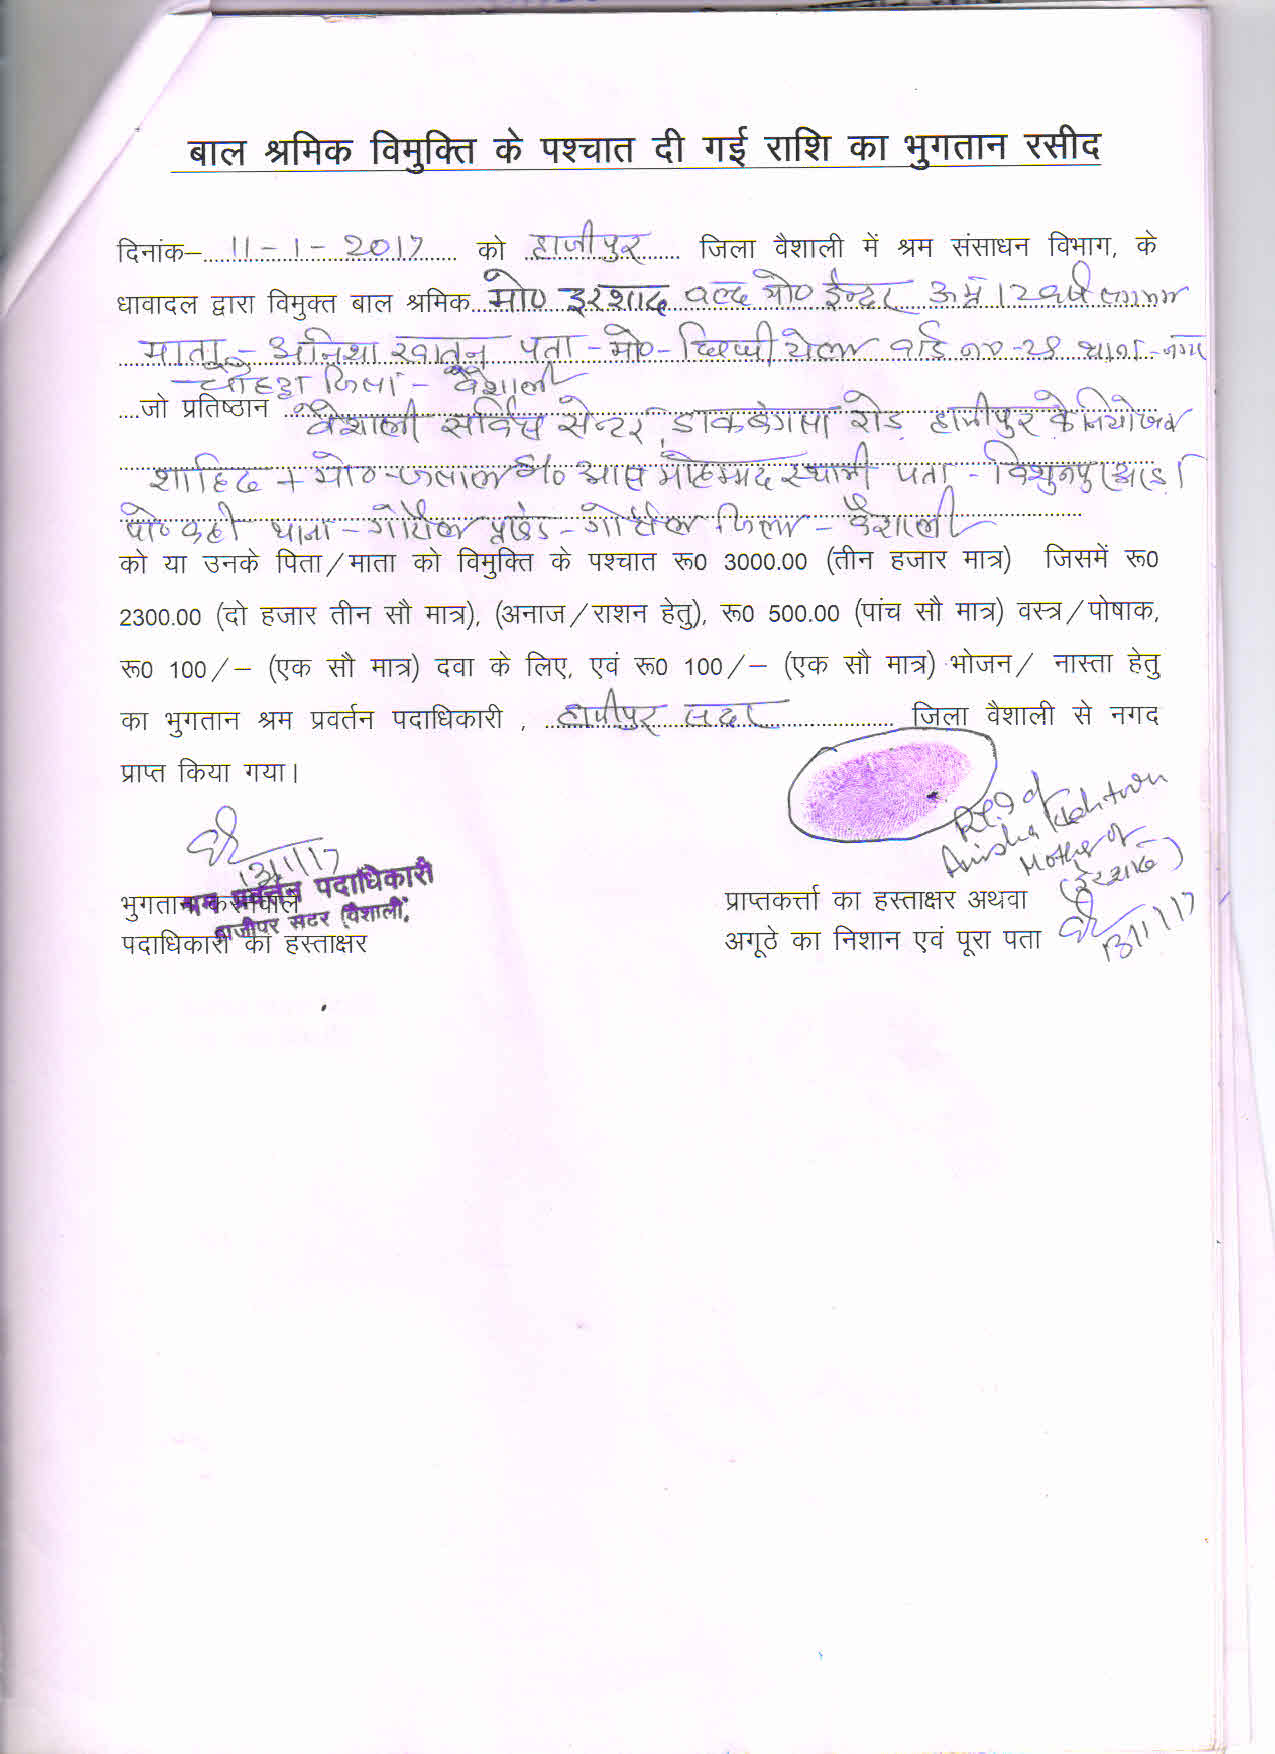 बाल श्रमिक विमुक्ति के पश्चात दी गई राशि का भुगतान रसीद
दिनांक–....11-1-2017.... को ..हाजीपुर.... जिला वैशाली में श्रम संसाधन विभाग, के
धावादल द्वारा विमुक्त बाल श्रमिक..मो० इरशाद वल्द मो० ईन्दर उम्र 12 वर्ष लगभग
माता - अनिशा खातुन पता - मो० - वार्ड न० - 28 थाना - नगर
जिला - वैशाली
....जो प्रतिष्ठान ....वैशाली सर्विस सेन्टर, डाकबंगला रोड, हाजीपुर के नियोजक
शाहिद + मो० जलाल आस मोहम्मद स्थायी पता - विशुनपुर
थाना - गोरौल प्रखंड - गोरौल जिला - वैशाली
को या उनके पिता/माता को विमुक्ति के पश्चात रू0 3000.00 (तीन हजार मात्र) जिसमें रू0
2300.00 (दो हजार तीन सौ मात्र), (अनाज/राशन हेतु), रू0 500.00 (पांच सौ मात्र) वस्त्र/पोषाक,
रू0 100/– (एक सौ मात्र) दवा के लिए, एवं रू0 100/– (एक सौ मात्र) भोजन/ नास्ता हेतु
का भुगतान श्रम प्रवर्तन पदाधिकारी , ..हाजीपुर सदर.......... जिला वैशाली से नगद
प्राप्त किया गया।
of
Anisha Khatoon
Mother of
(इरशाद)
13/1/17
13/1/17
श्रम प्रवर्तन पदाधिकारी
हाजीपुर सदर (वैशाली)
भुगतान करनेवाले
पदाधिकारी का हस्ताक्षर
प्राप्तकर्त्ता का हस्ताक्षर अथवा
अगूठे का निशान एवं पूरा पता